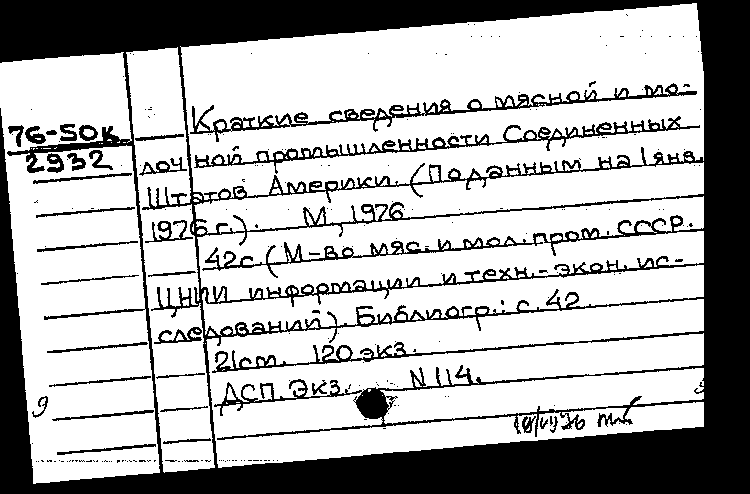 76-50к
2932
Краткие сведения о мясной и мо-
лочной промышленности Соединенных
Штатов Америки. (По данным на 1 янв.
1976 г.). М, 1976
42с. (М-во мяс. и мол. пром. СССР.
ЦНИИ информации и техн.-экон. ис-
следований). Библиогр.: с. 42.
21см. 120 экз.
ДСП. Экз. N 114.
9